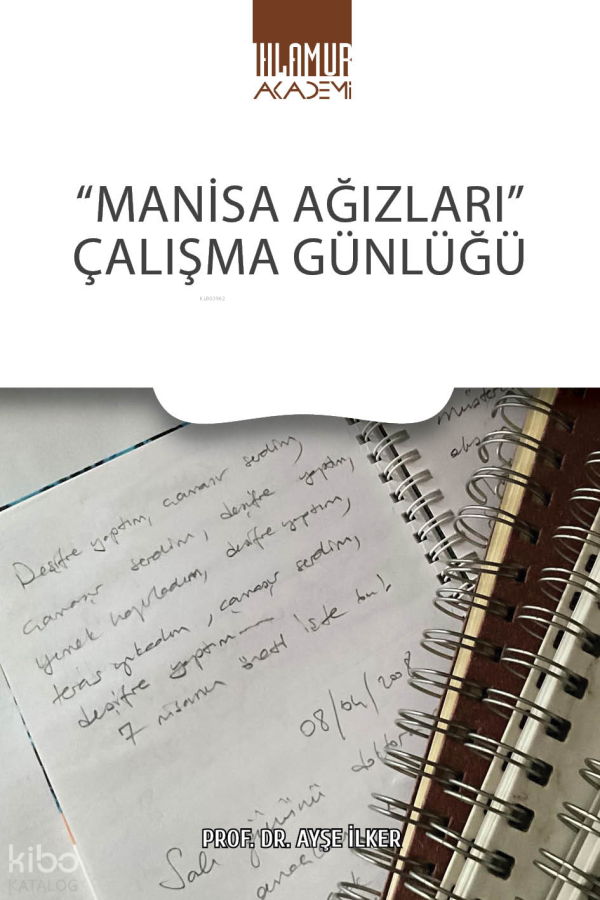 IHLAMUR
AKADEMİ
“MANİSA AĞIZLARI”
ÇALIŞMA GÜNLÜĞÜ
Müşteri
Deşifre yaptım, çamaşır serdim,
çamaşır serdim, deşifre yaptım,
yemek hazırladım, deşifre yaptım,
teras yıkadım, çamaşır serdim,
deşifre yaptım
7 nisanın özeti işte bu!
08/04/2008
Salı gününü doktor
PROF. DR. AYŞE İLKER
kibo
KATALOG